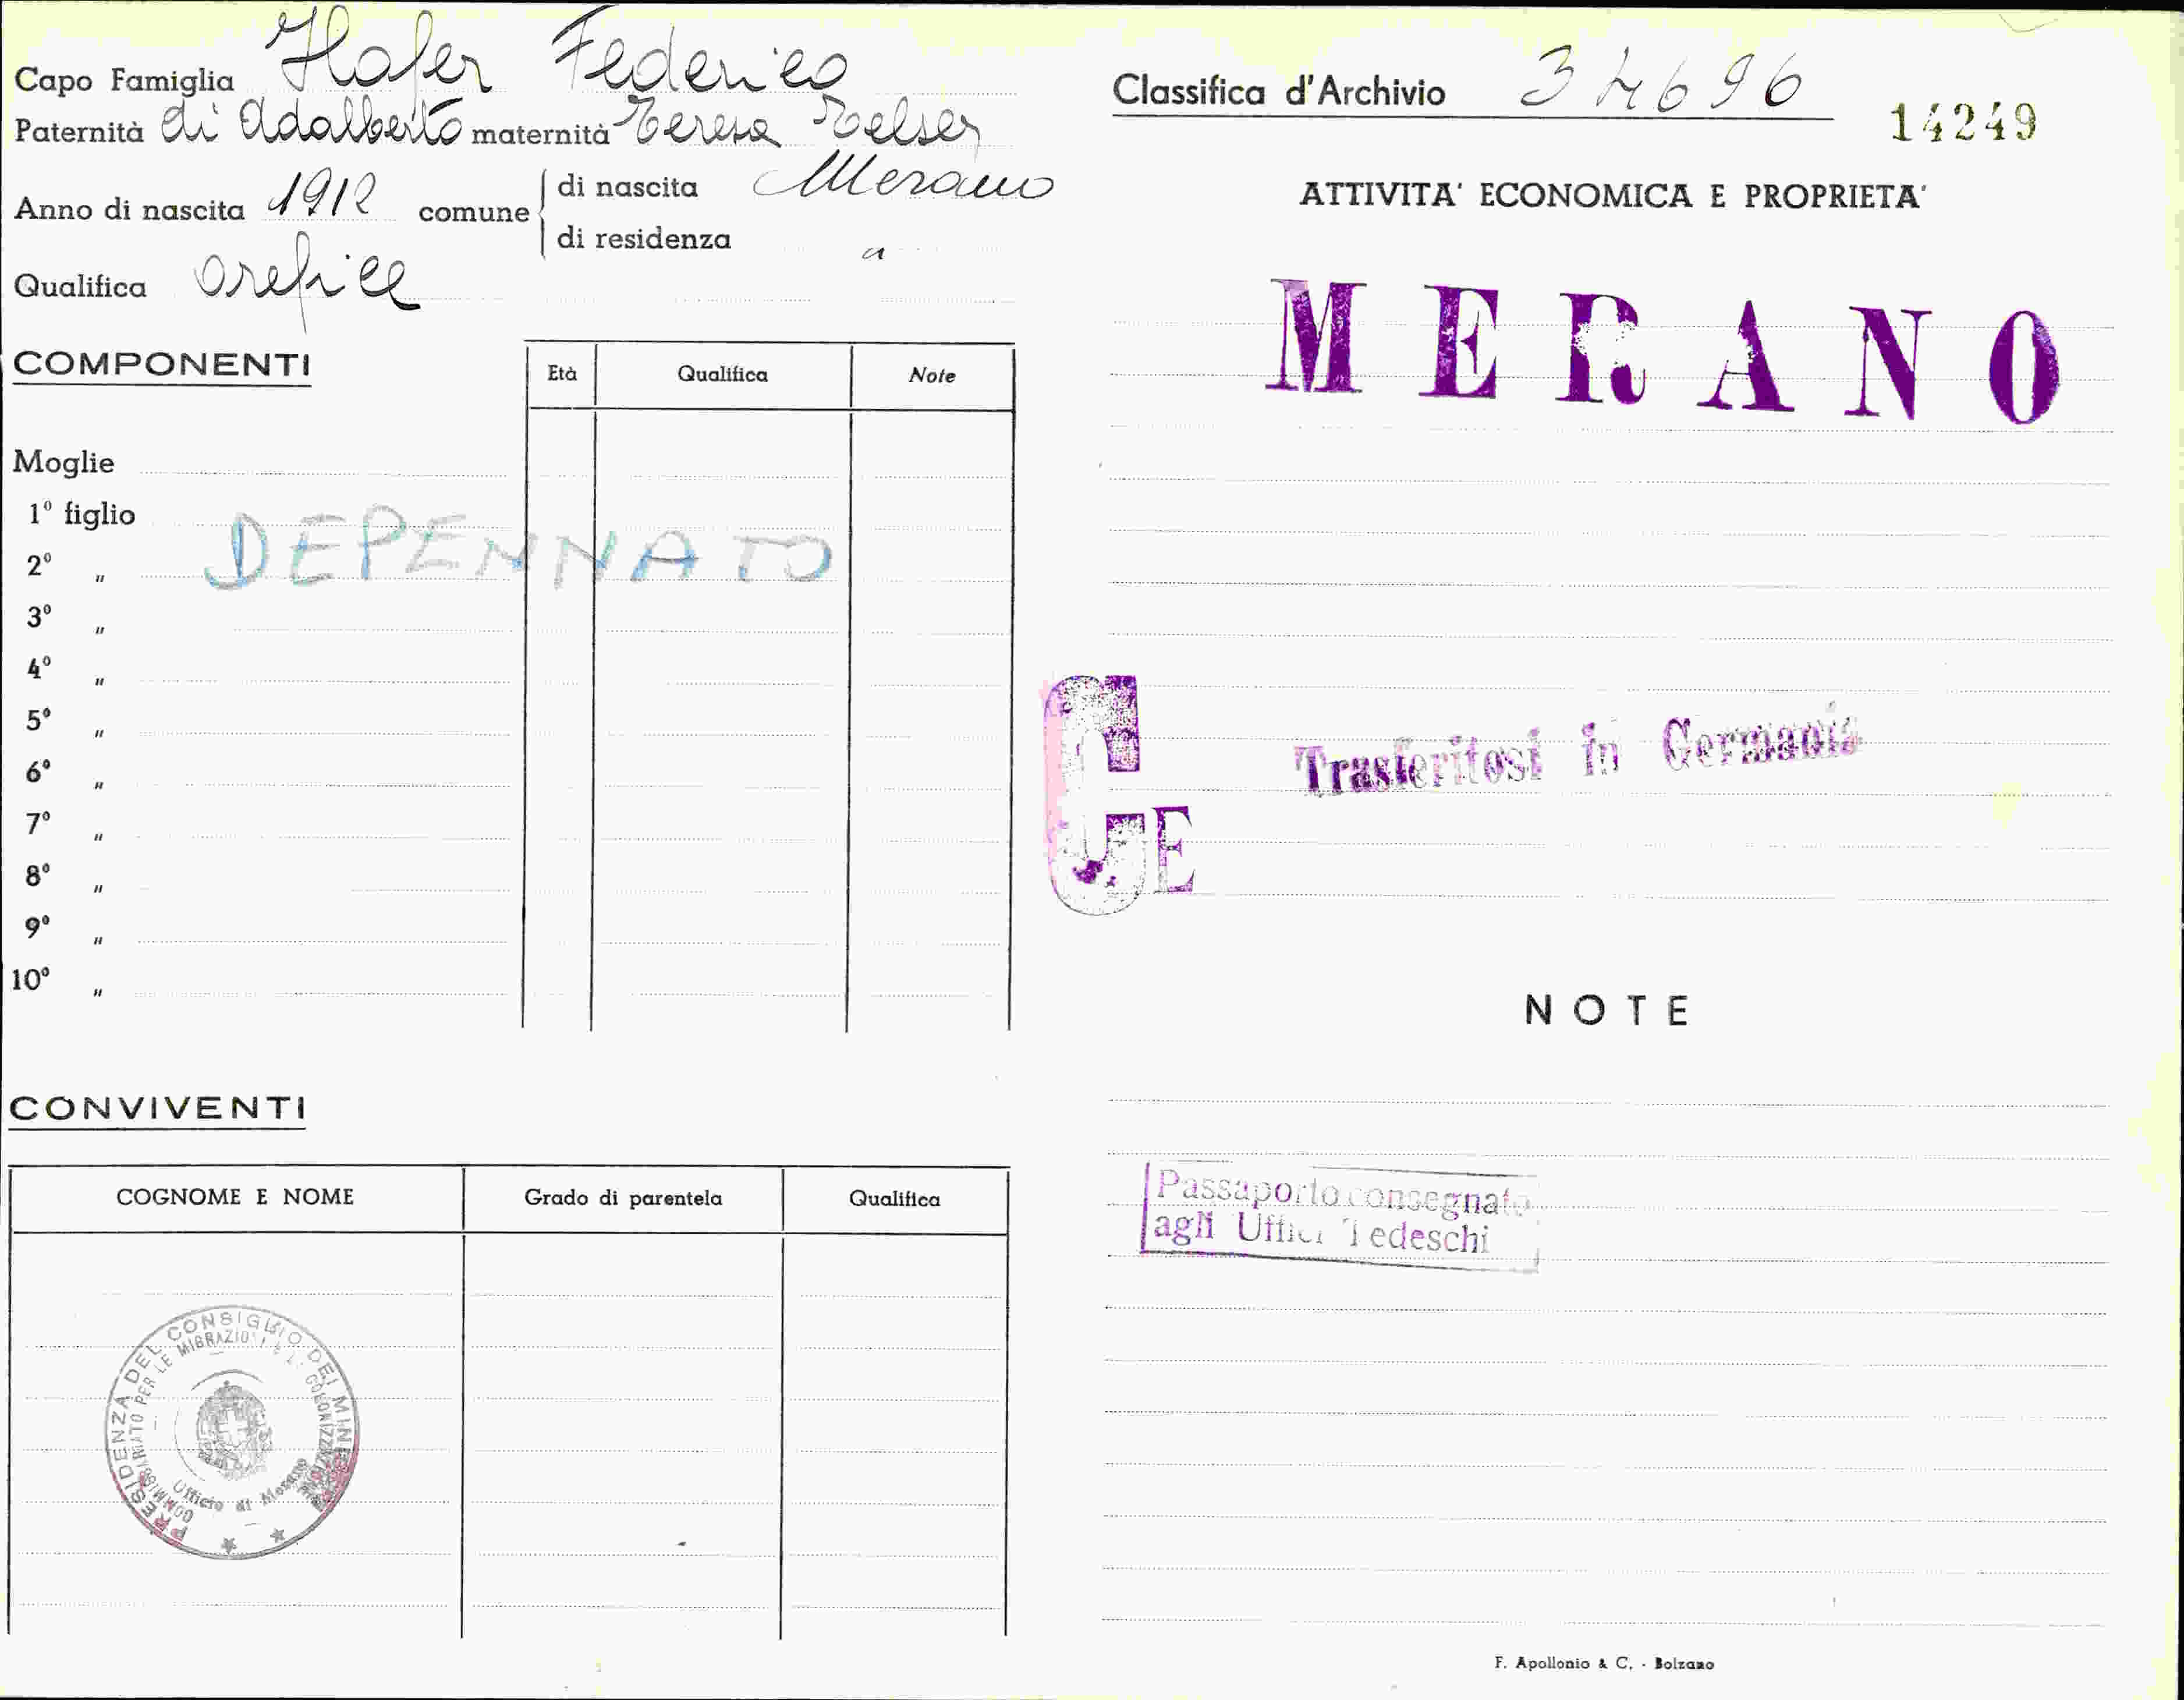 Capo Famiglia Hofer Federico
Paternità di Adalberto maternità Teresa Telser
Anno di nascita 1912 comune
di nascita Merano
di residenza "
Qualifica orefice
COMPONENTI
Età Qualifica Note
Moglie
1º figlio
DEPENNATO
2º "
3º "
4º "
5º "
6º "
7º "
8º "
9º "
10º "
CONVIVENTI
COGNOME E NOME Grado di parentela Qualifica
PRESIDENZA DEL CONSIGLIO DEI MINISTRI
COMMISSARIATO PER LE MIGRAZIONI E LA COLONIZZAZIONE
Ufficio di Merano
Classifica d'Archivio 34696
14249
ATTIVITA' ECONOMICA E PROPRIETA'
MERANO
Trasferitosi in Germania
G
E
NOTE
Passaporto consegnato
agli Uffici Tedeschi
F. Apollonio & C. - Bolzano